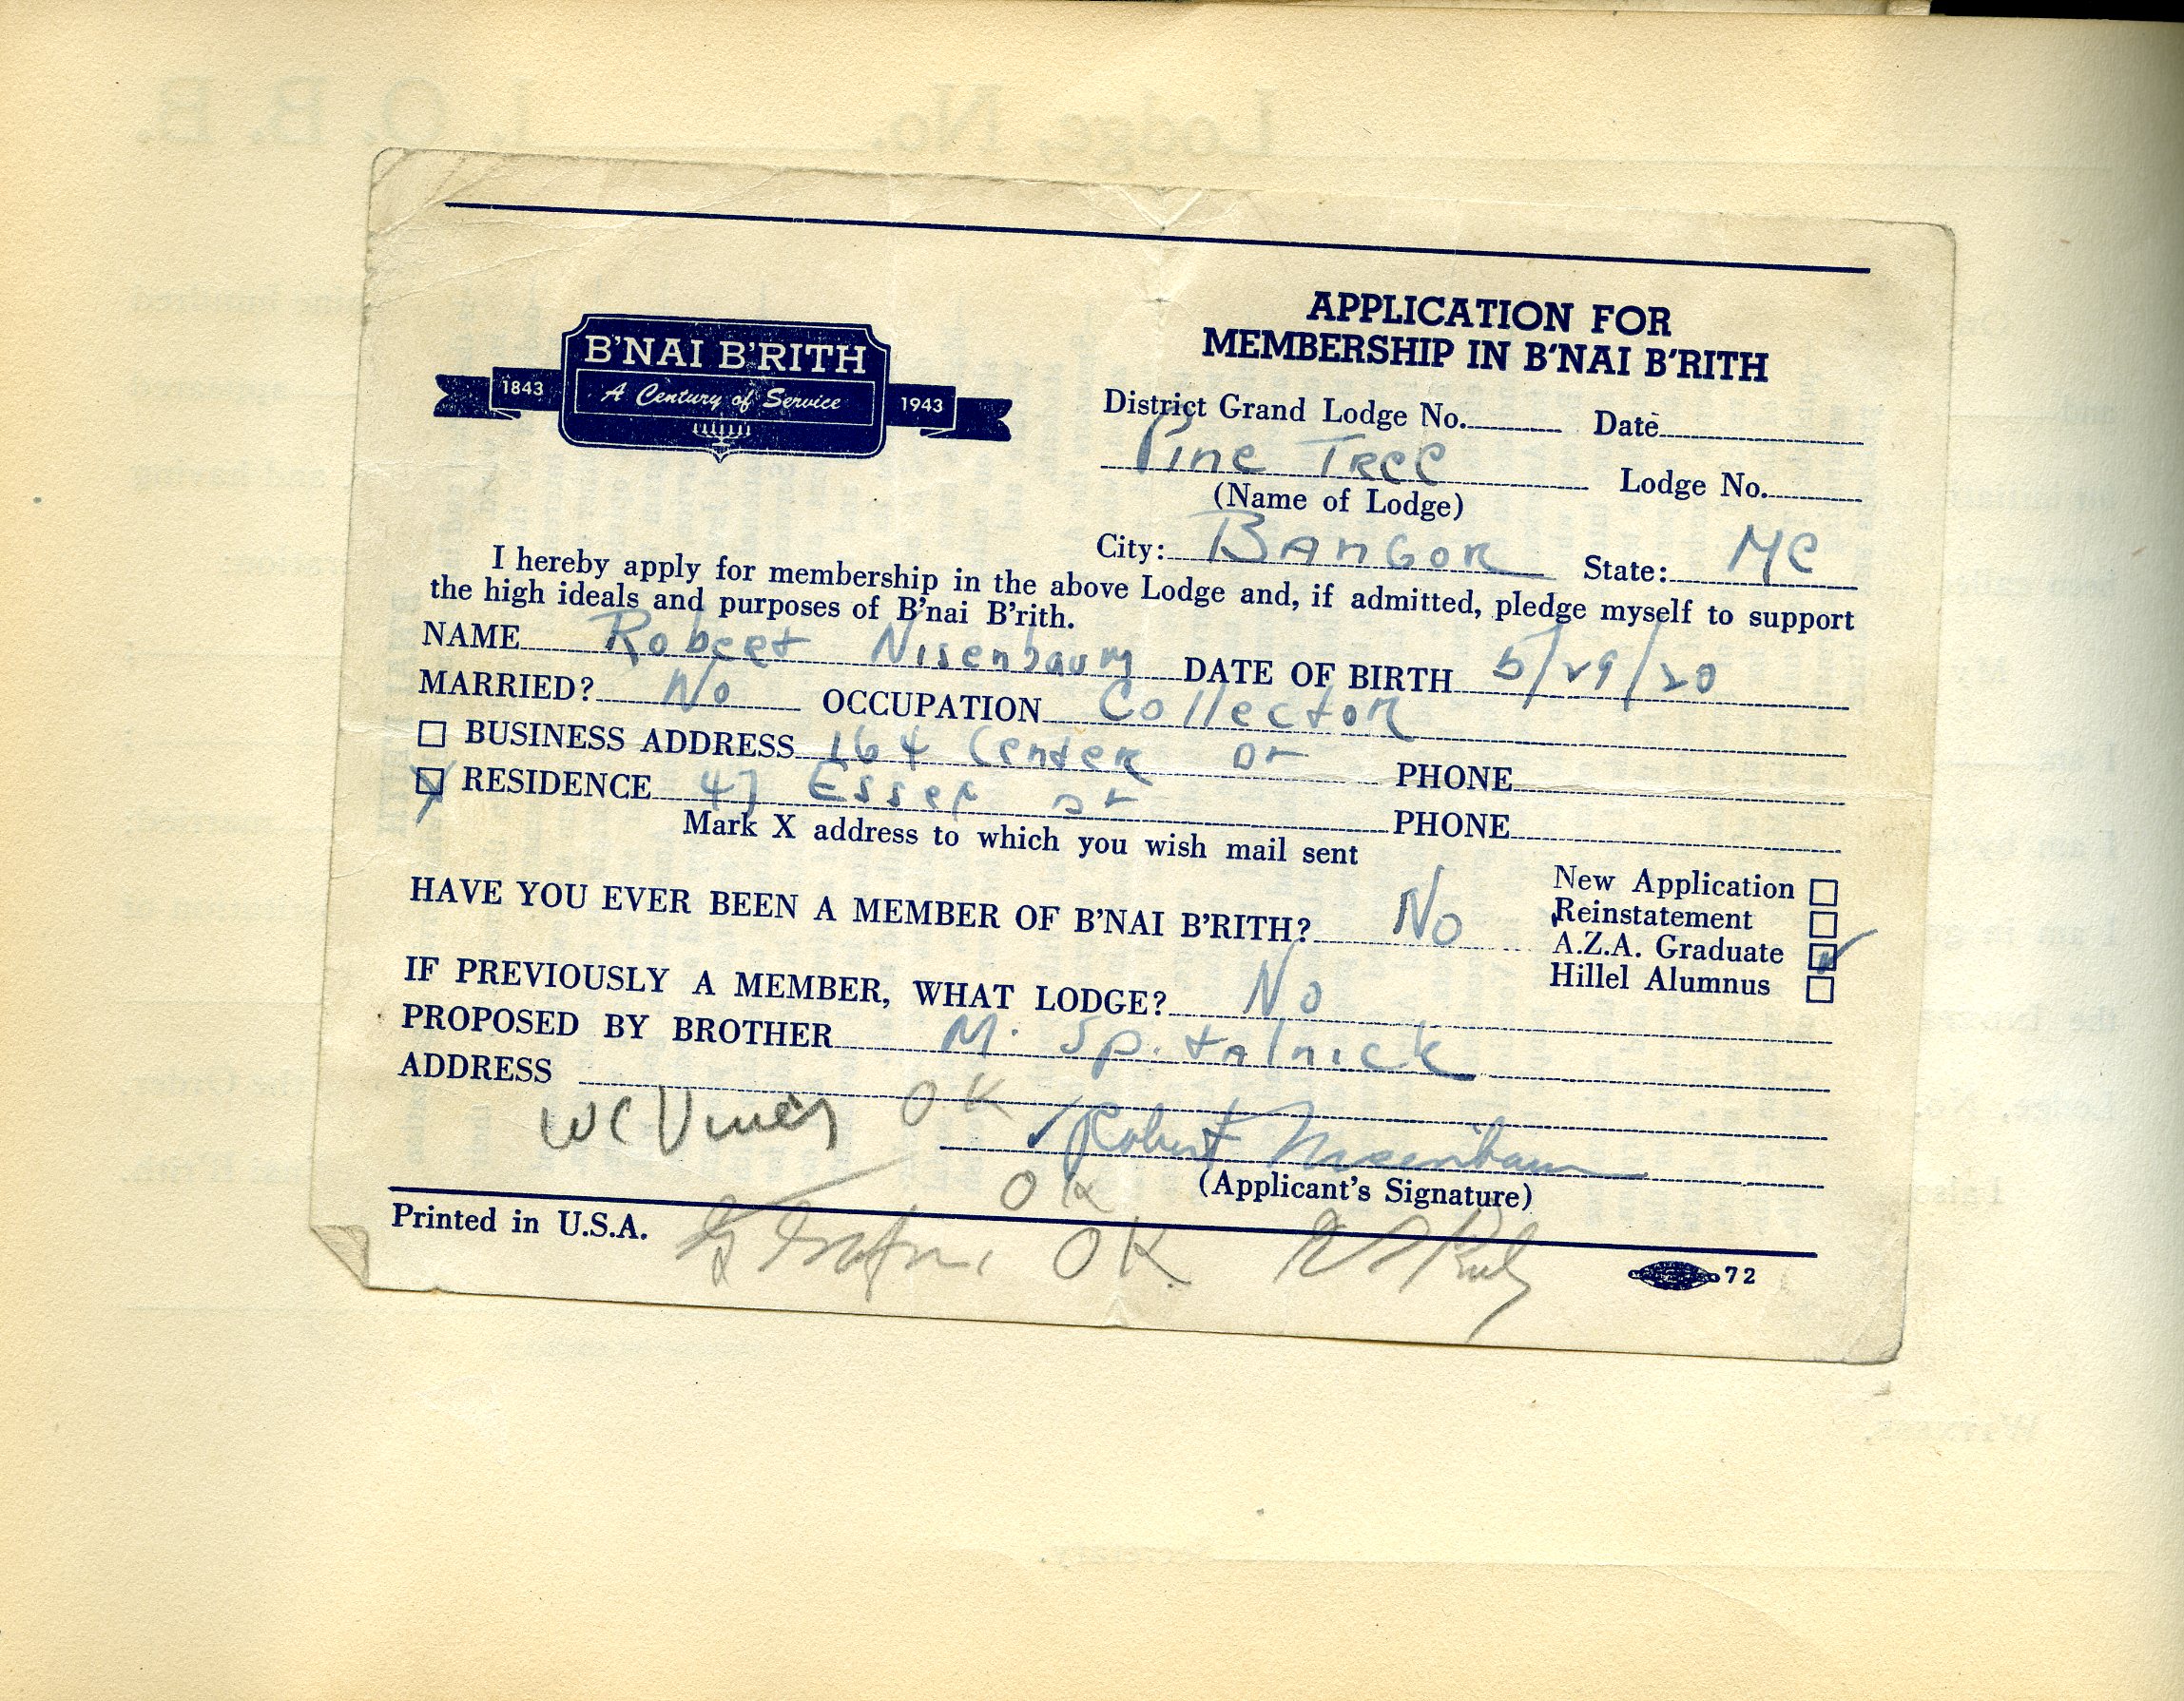 B'NAI B'RITH
1843 A Century of Service 1943
APPLICATION FOR
MEMBERSHIP IN B'NAI B'RITH
District Grand Lodge No. Date
Pine Tree Lodge No.
(Name of Lodge)
City: Bangor State: Me
I hereby apply for membership in the above Lodge and, if admitted, pledge myself to support
the high ideals and purposes of B'nai B'rith.
NAME Robert Nisenbaum DATE OF BIRTH 5/29/20
MARRIED? No OCCUPATION Collector
BUSINESS ADDRESS 164 Center St PHONE
RESIDENCE 47 Essex St PHONE
Mark X address to which you wish mail sent
New Application
HAVE YOU EVER BEEN A MEMBER OF B'NAI B'RITH? No
Reinstatement
A.Z.A. Graduate
Hillel Alumnus
IF PREVIOUSLY A MEMBER, WHAT LODGE? No
PROPOSED BY BROTHER M. Spitalnick
ADDRESS
OK
Robert Nisenbaum
(Applicant's Signature)
OK
Printed in U.S.A.
OK
72
Lodge, No. I. O. B. B.